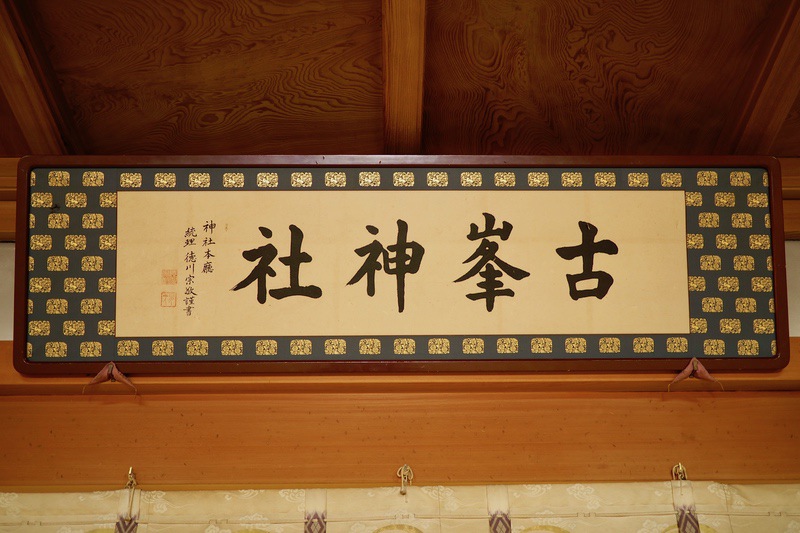 古峯神社
神社本廳
統理 徳川宗敬謹書